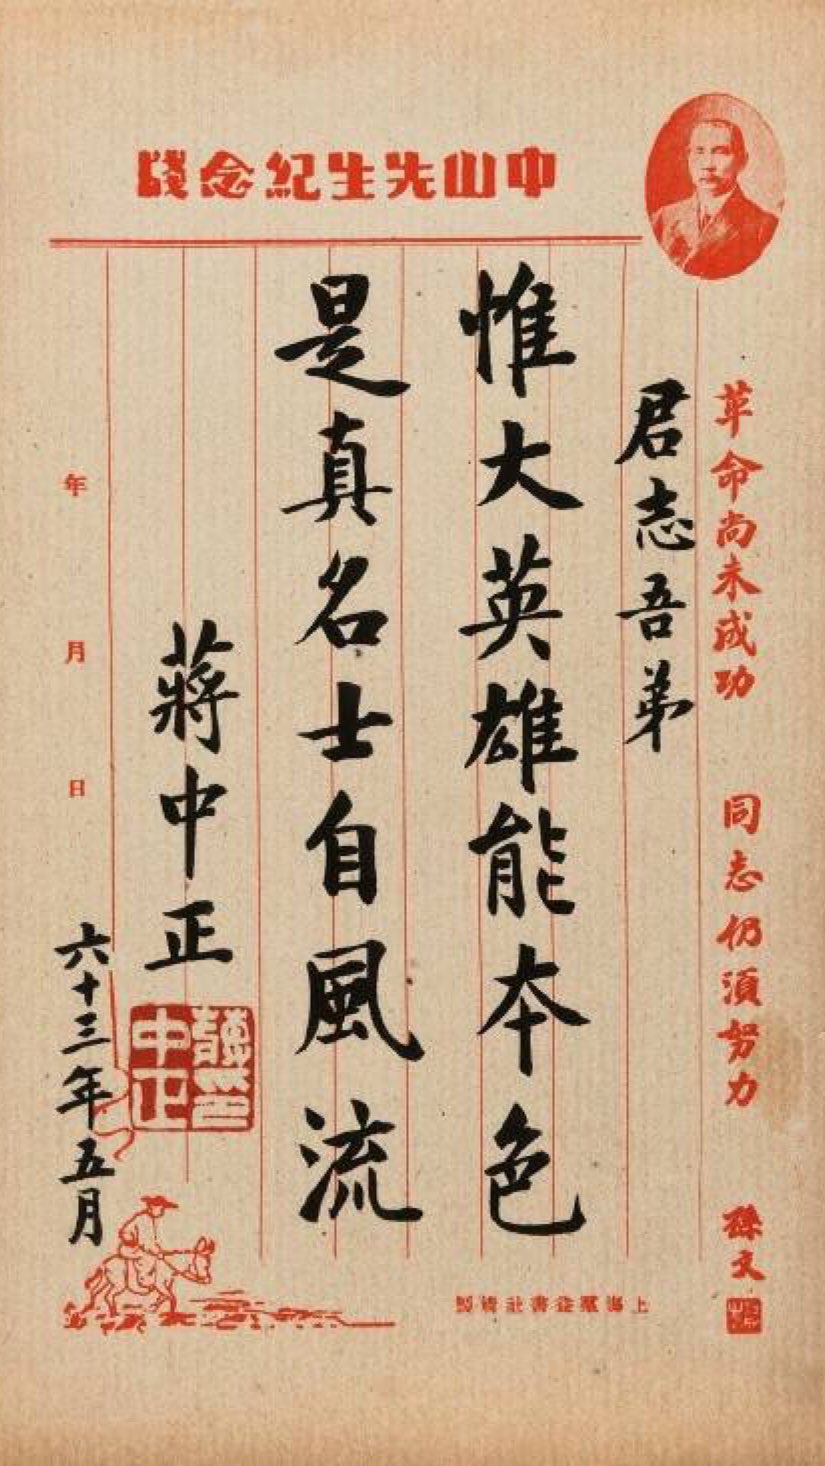 中山先生紀念牋
革命尚未成功 同志仍須努力 孫文
君志吾弟
惟大英雄能本色
是真名士自風流
蔣中正
蔣印
中正
年 月 日
六十三年五月
上海益書社製